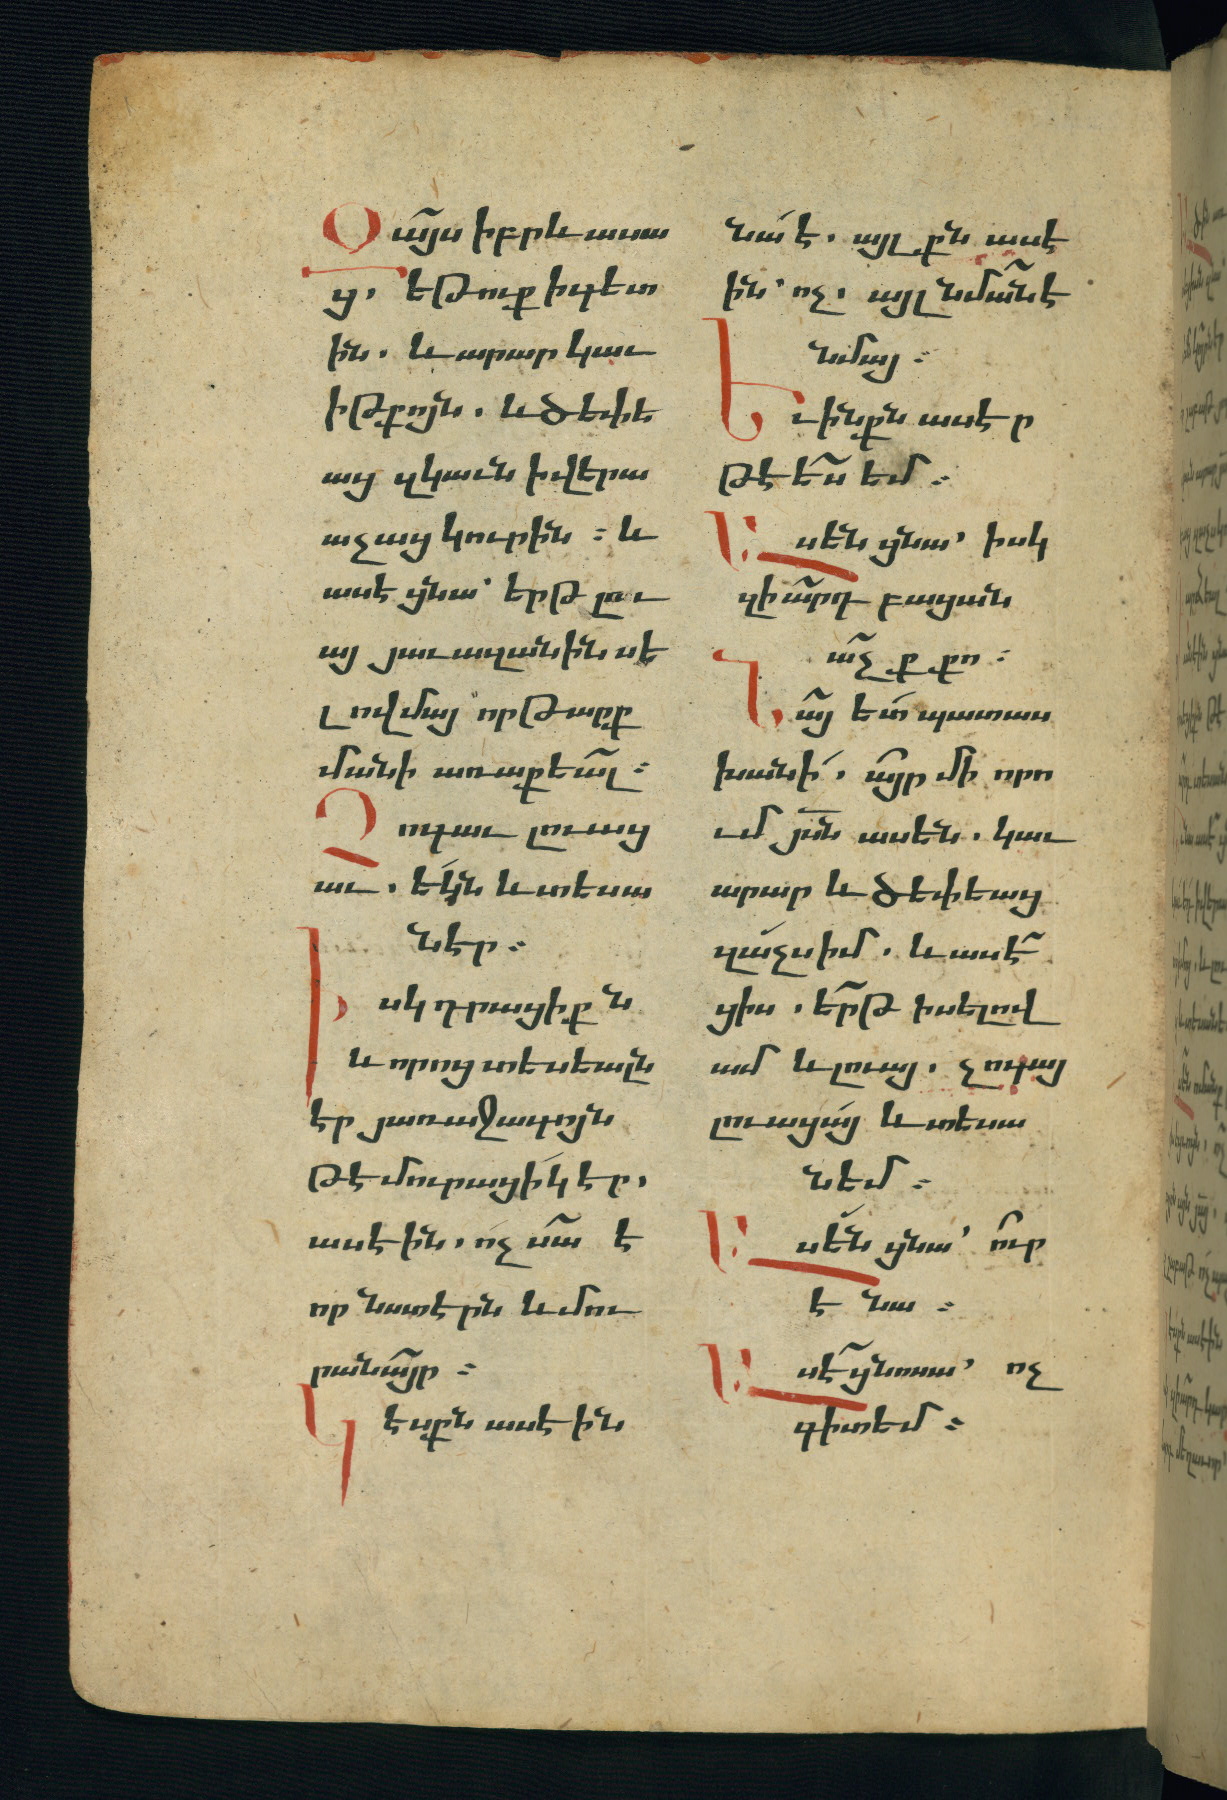 Զայս իբրև ասա
ց, եթուք ի գետ
ին. և արար կաւ
ի թքոյն. և ծեփե
աց զկաւն ի վերա
աչաց կուրին ։ և
ասէ ցնա՝ երթ լու
այ յաւազանին սէ
լովմայ՝ որ թարգ
մանի առաքեալ ։
Չոգաւ լուաց
աւ. եկն և տեսա
նէր ։
Իսկ դրացիքն
և որոց տեսեալն
էր յառաջագոյն
թէ մուրացիկ էր,
ասէին. ոչ սա է
որ նստէրն և մու
րանայր ։
Կէսքն ասէին
նա է. այլքն ասէ
ին՝ ոչ. այլ նման է
նմայ ։
Եւ ինքն ասէր
թէ ես եմ ։
Ասեն ցնա՝ իսկ
զիարդ բացան
աչք քո ։
Նայ ետ պատաս
խանի. այր մի որո
ւմ յն ասեն. կաւ
արար և ծեփեաց
զաչս իմ. և ասէ
ցիս. երթ ի սելով
ամ և լուայ. չոգայ
լուացայ և տեսա
նեմ ։
Ասեն ցնա՝ ուր
է նա ։
Ասէ ցնոսա՝ ոչ
գիտեմ ։